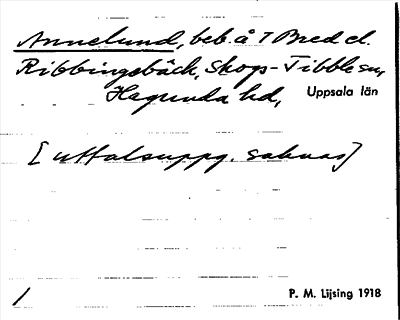 Annelund, beb. å 7 Bred el.
Ribbingebäck, Skogs-Tibble sn,
Hagunda hd, Uppsala län
[uttalsuppg. saknas]
/ P. M. Lijsing 1918